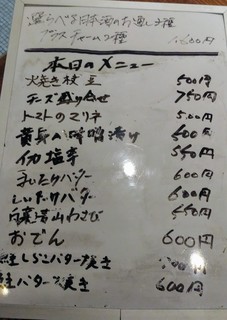 日本酒のお通し3種
1,600円
本日のメニュー
焼き枝豆 500円
チーズ盛り合せ 750円
トマトのマリネ 500円
黄身の味噌漬け 600円
イカ塩辛 550円
バター 600円
しいたけバター 600円
山わさび 550円
おでん 600円
鮭しらこバター焼き
鮭バター焼き 600円